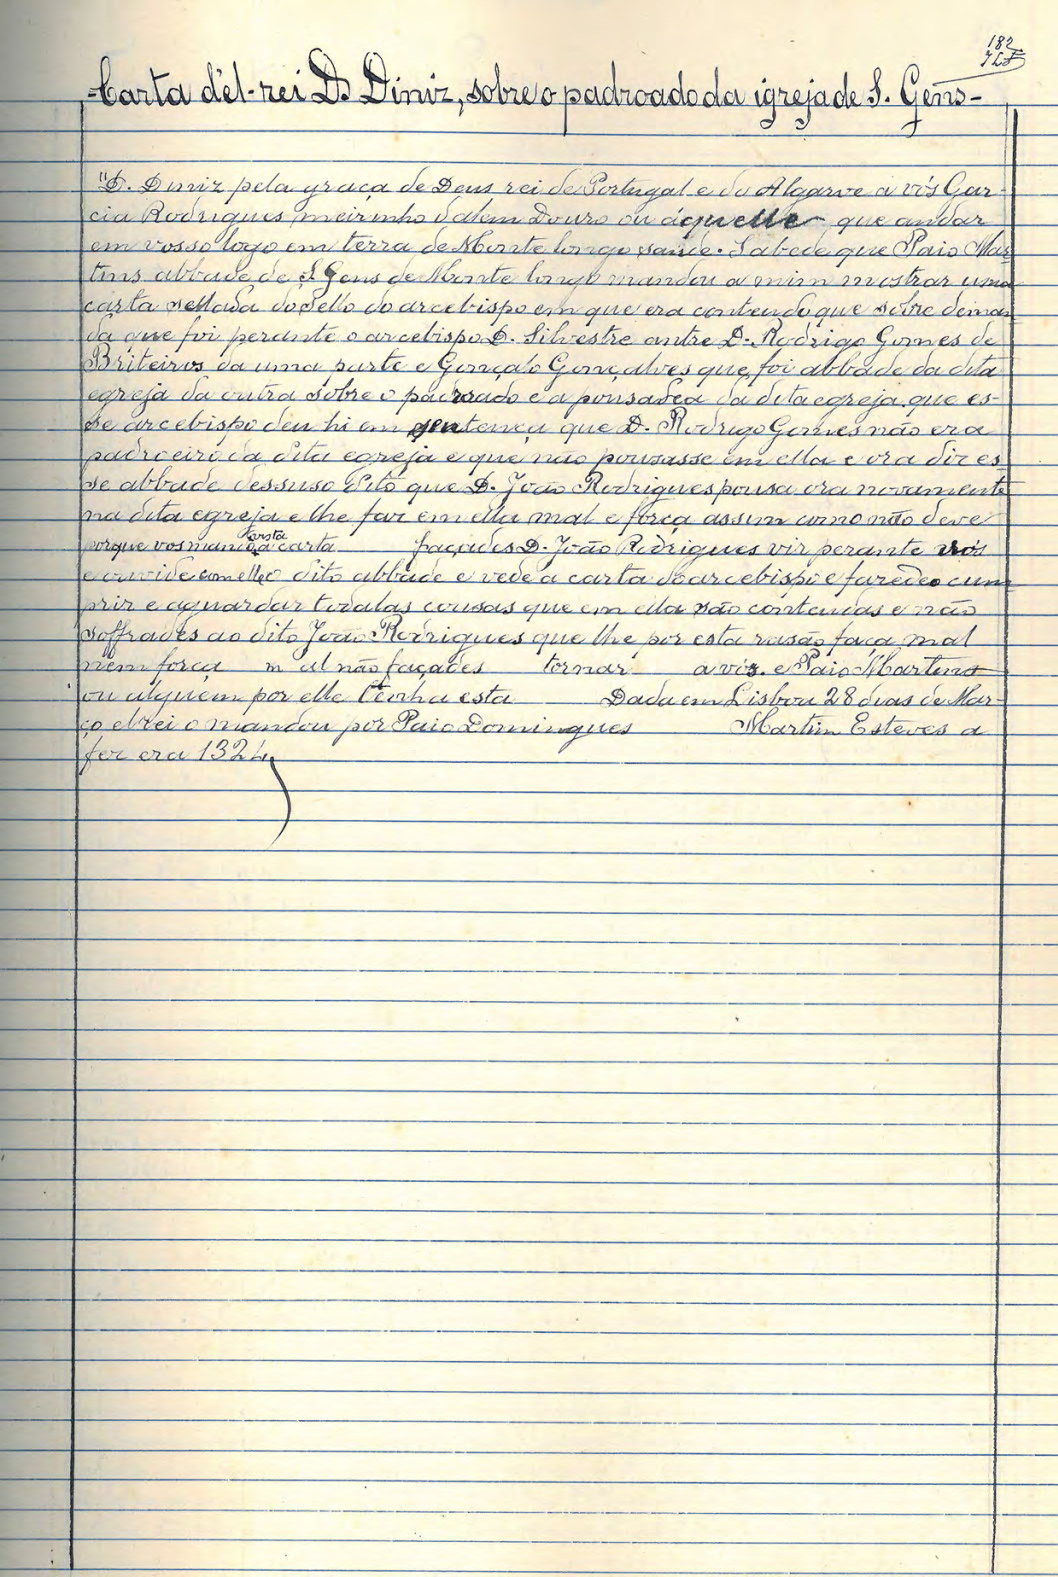 182
-Carta d'el-rei D. Diniz, sobre o padroado da igreja de S. Gens-
"D. Diniz pela graça de Deus rei de Portugal e do Algarve a vós Gar-
cia Rodrigues meirinho dalem Douro ou áquelle que andar
em vosso logo em terra de Monte longo saude. Sabede que Paio Mar-
tins abbade de S Gens de Monte longo mandou a mim mostrar uma
carta sellada do sello do arcebispo em que era contendo que sobre deman
da que foi perante o arcebispo D. Silvestre antre D. Rodrigo Gomes de
Briteiros da uma parte e Gonçalo Gonçalves que foi abbade da dita
egreja da outra sobre o padroado e a pousadea da dita egreja que es-
se arcebispo deu hi em sentença que D. Rodrigo Gomes não era
padroeiro da dita egreja e que não pousasse em ella e ora diz es
se abbade dessuso dito que D. João Rodrigues pousa ora novamente
na dita egreja e lhe faz em ella mal e força assim como não deve
porque vos mando a vista carta façades D. João Rodrigues vir perante vós
e ouvide com elle o dito abbade e vede a carta do arcebispo e fazedeo cum
prir e aguardar todalas cousas que em ella são contendas e não
soffrades ao dito João Rodrigues que lhe por esta rasão faça mal
nem força m al não façades tornar a vós. e Paio Martins
ou alguem por elle tenha esta Dada em Lisboa 28 dias de Mar-
ço elrei o mandou por Paio Domingues Martim Esteves a
fez era 1324